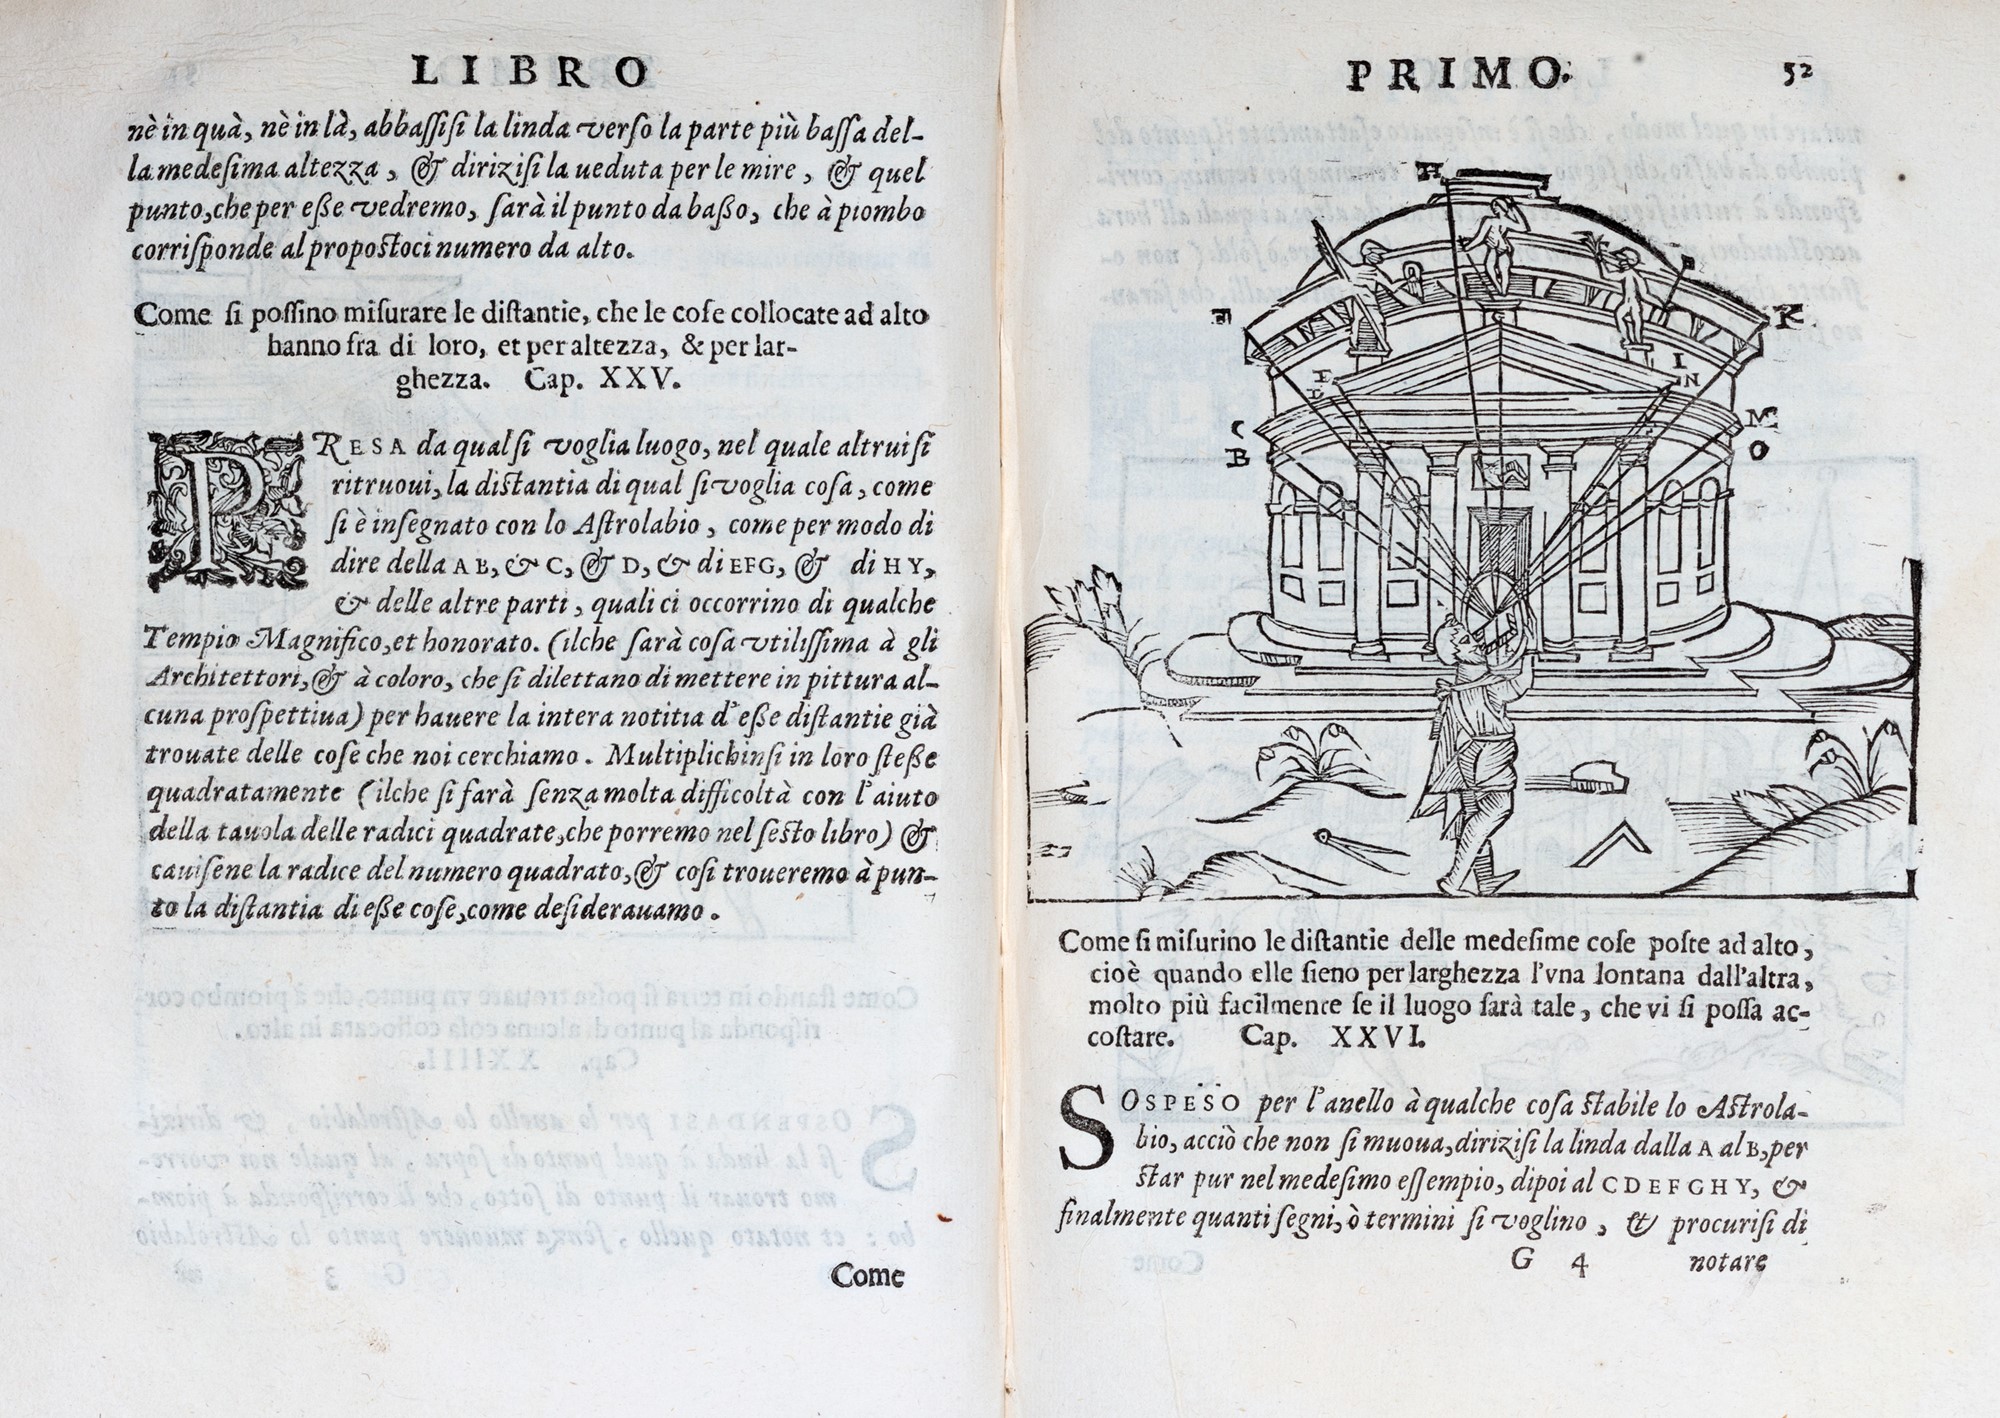 LIBRO
nè in quà, nè in là, abbaſſiſi la linda verſo la parte più baſſa del-
la medeſima altezza, & dirizisi la ueduta per le mire, & quel
punto, che per eße vedremo, ſarà il punto da baßo, che à piombo
corriſponde al propoſtoci numero da alto.
Come ſi poſſino miſurare le diſtantie, che le coſe collocate ad alto
hanno fra di loro, et per altezza, & per lar-
ghezza. Cap. XXV.
PRESA da qual ſi voglia luogo, nel quale altrui ſi
ritruoui, la diſtantia di qual ſi voglia coſa, come
ſi è inſegnato con lo Aſtrolabio, come per modo di
dire della AB, & C, & D, & di EFG, & di HY,
& delle altre parti, quali ci occorrino di qualche
Tempio Magnifico, et honorato. (ilche ſarà coſa vtiliſſima à gli
Architettori, & à coloro, che ſi dilettano di mettere in pittura al-
cuna proſpettiua) per hauere la intera notitia d'eße diſtantie già
trouate delle coſe che noi cerchiamo. Multiplichinſi in loro ſteße
quadratamente (ilche ſi farà ſenza molta difficoltà con l'aiuto
della tauola delle radici quadrate, che porremo nel ſeſto libro) &
cauiſene la radice del numero quadrato, & coſi troueremo à pun-
to la diſtantia di eße coſe, come deſiderauamo.
Come
PRIMO.
52
H
K
G
I
E
N
D
C
M
B
O
Come ſi miſurino le diſtantie delle medeſime coſe poſte ad alto,
cioè quando elle ſieno per larghezza l'vna lontana dall'altra,
molto più facilmente ſe il luogo ſarà tale, che vi ſi poſſa ac-
coſtare. Cap. XXVI.
SOSPESO per l'anello à qualche coſa ſtabile lo Aſtrola-
bio, acciò che non ſi muoua, diriziſi la linda dalla A al B, per
ſtar pur nel medeſimo eſſempio, dipoi al CDEFGHY, &
finalmente quanti ſegni, ò termini ſi voglino, & procuriſi di
G 4
notare